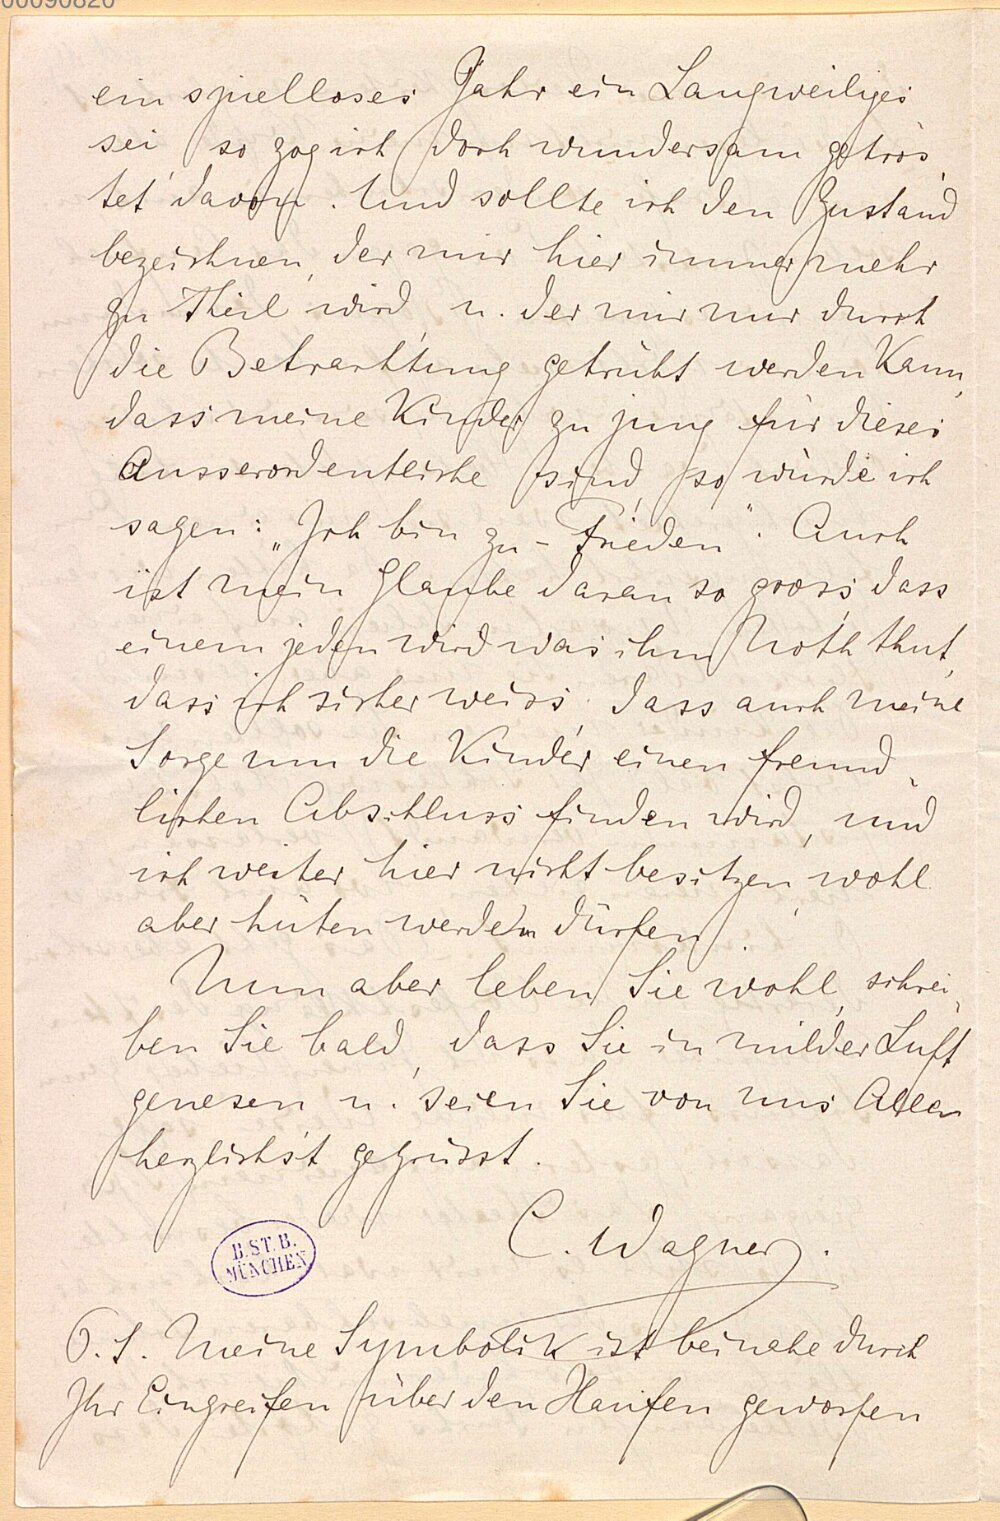 00090820
ein spielloses Jahr ein Langweiliges
sei so zog ich doch wundersam getrös-
tet davon. Und sollte ich den Zustand
bezeichnen, der mir hier immer mehr
zu Theil wird, u. der mir nur durch
die Betrachtung getrübt werden kann,
dass meine Kinder zu jung für dieses
Ausserordentliche sind, so würde ich
sagen: „Ich bin zu-Frieden". Auch
ist mein Glaube daran so gross, dass
einem jeden wird was ihm Noth thut,
dass ich sicher weiss, dass auch meine
Sorge um die Kinder einen freund-
lichen Abschluss finden wird, und
ich weiter hier nicht besitzen, wohl
aber hüten werde dürfen.
Nun aber leben Sie wohl, schrei-
ben Sie bald, dass Sie in milder Luft
genesen u. seien Sie von uns Allen
herzlichst gegrüsst.
C. Wagner.
B.ST.B.
MÜNCHEN
P.S. Meine Symbolik ist beinahe durch
Ihr Eingreifen über den Haufen geworfen